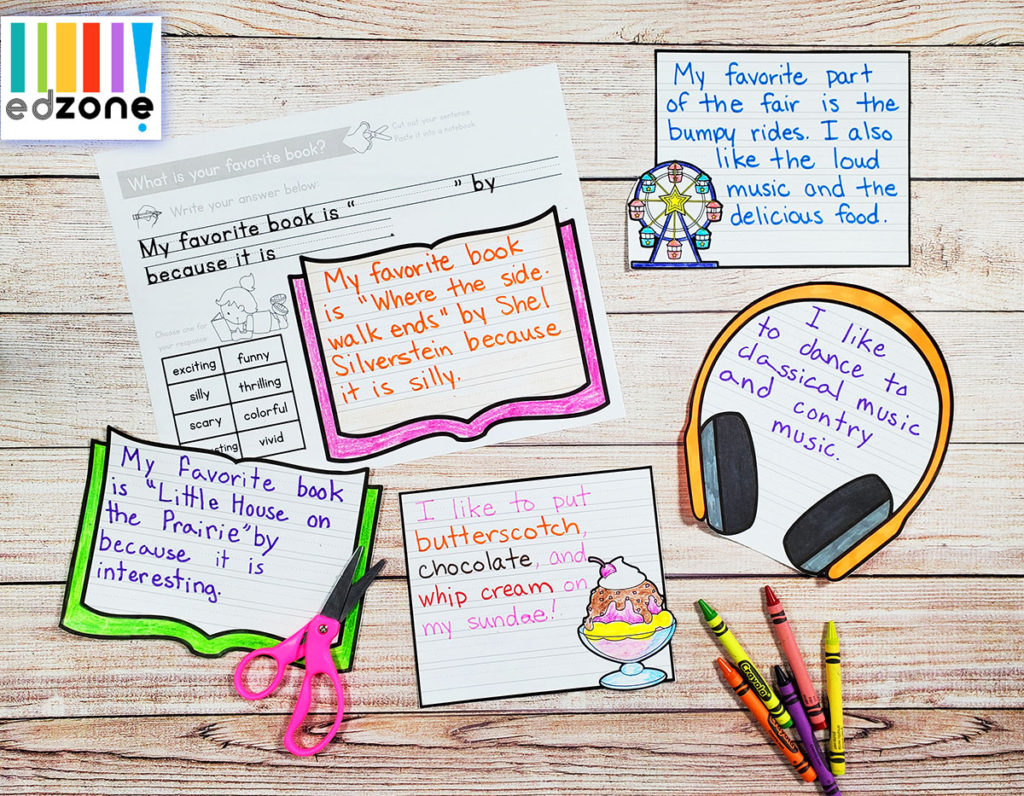 edzone
What is your favorite book?
Cut out your sentence.
Paste it into a notebook
Write your answer below:
My favorite book is " " by
because it is .
Choose one for
your response
exciting funny
silly thrilling
scary colorful
sting vivid
My favorite book
is "Where the side.
walk ends" by Shel
Silverstein because
it is silly.
My favorite part
of the fair is the
bumpy rides. I also
like the loud
music and the
delicious food.
I like
to dance to
classical music
and contry
music.
My favorite book
is "Little House on
the Prairie" by
because it is
interesting.
I like to put
butterscotch,
chocolate, and
whip cream on
my sundae!
Crayola